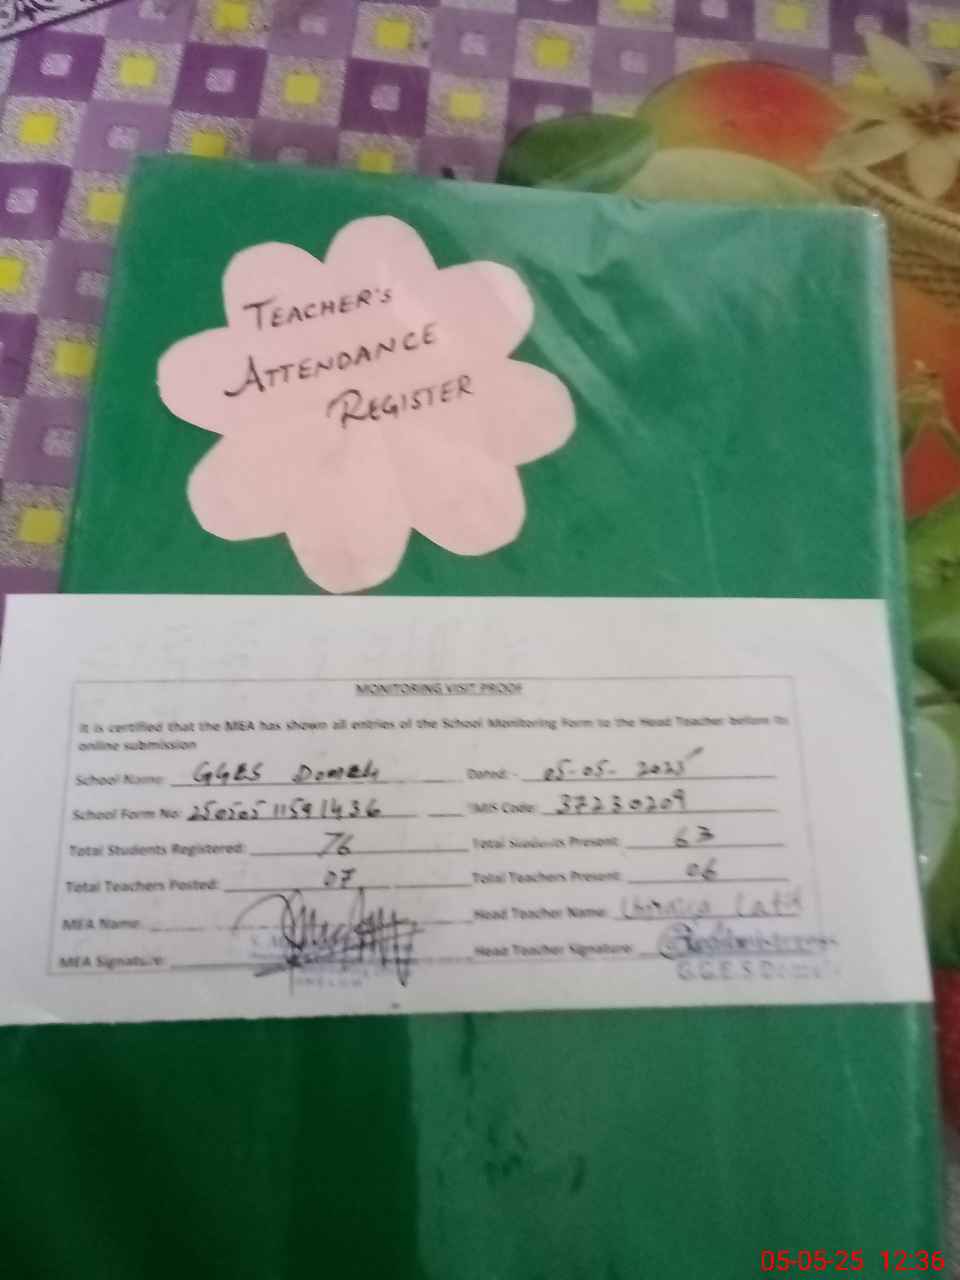 TEACHER'S
ATTENDANCE
REGISTER
MONITORING VISIT PROOF
It is certified that the MEA has shown all entries of the School Monitoring Form to the Head Teacher before its
online submission
School Name: GGES Domeli Dated:- 05-05-2025
School Form No: 250505 11591436 EMIS Code: 37230209
Total Students Registered: 76 Total Students Present: 63
Total Teachers Posted: 07 Total Teachers Present: 06
MEA Name: Head Teacher Name: Latif
MEA Signature: Head Teacher Signature:
G.G.E.S Domeli
05-05-25 12:36